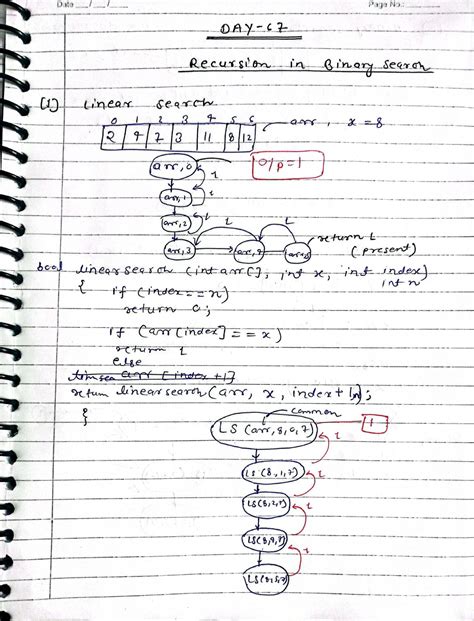 Date __/__/__ Page No.:
DAY-67
Recursion in Binary Search
(1) Linear search
0 1 2 3 4 5 6
2 4 7 3 11 8 12 arr, x = 8
arr, 0 O/p = 1
1
arr, 1
1
arr, 2 1 1 return 1
arr, 3 (present)
bool linearsearch (int arr[], int x, int index,
int n
{ if (index == n)
return 0;
if (arr[index] == x)
return 1
else
arr [index + 1]
return linearsearch (arr, x, index + 1, n);
{ common
LS (arr, 8, 0, 7) 1
1
LS (8, 1, 7)
1
LS (8, 2, 7)
1
1